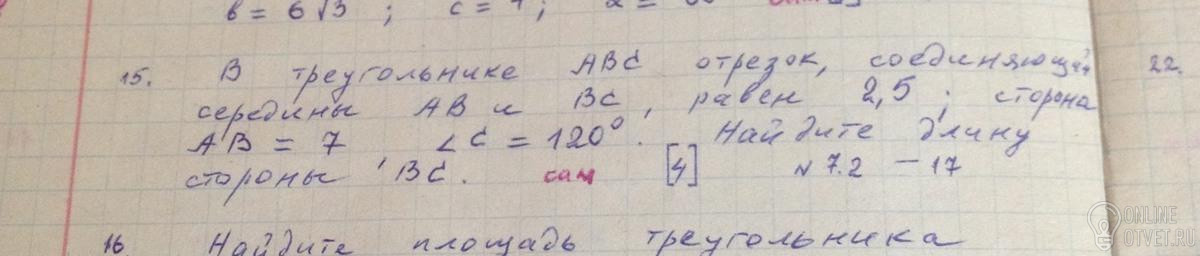 в = 6√3 ; c =
15. В треугольнике ABC отрезок, соединяющий 22.
середины AB и BC, равен 2,5; сторона
AB = 7 ∠C = 120°. Найдите длину
стороны BC. сам [4] N 7.2 – 17
16. Найдите площадь треугольника
ONLINE
OTVET.RU